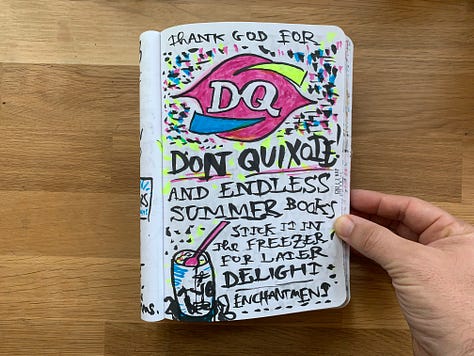 THANK GOD FOR
DQ
DON QUIXOTE!
AND ENDLESS
SUMMER BOOKS
STICK IT IN
THE FREEZER
FOR LATER
DELIGHT
ENCHANTMENT